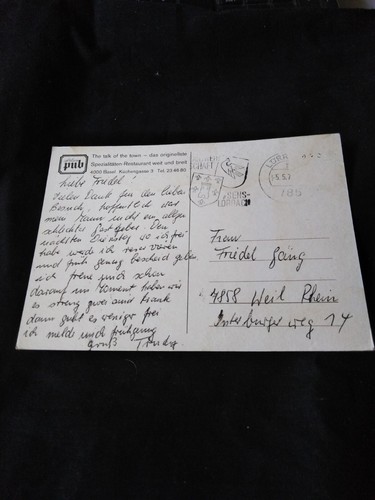 pub
The talk of the town – das originellste
Spezialitäten-Restaurant weit und breit
4000 Basel Küchengasse 3 Tel. 23 46 80
Liebe Friedel!
Vielen Dank für den lieben
Besuch, hoffentlich war
mein Mann nicht ein allzu
schlechter Gastgeber. Den
nächsten Dienstag wo ich frei
habe werde ich
und früh genug Bescheid geben
ich freue mich schon
darauf im Moment haben wir
es streng zwei sind krank
dann gibt es weniger frei
ich melde mich frühzeitig
Gruß Trudy
LÖRR
785
LÖRRACH
Frau
Friedel Gäng
4858 Weil Rhein
weg 14